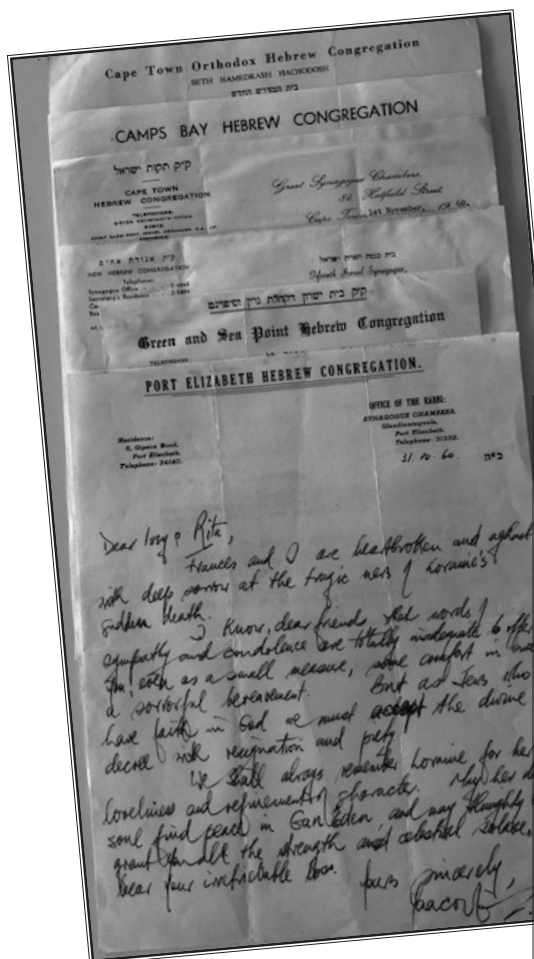 Cape Town Orthodox Hebrew Congregation
BETH HAMEDRASH HACHODOSH
בית המדרש החדש
CAMPS BAY HEBREW CONGREGATION
ק״ק תקות ישראל
CAPE TOWN
HEBREW CONGREGATION
TELEPHONES:
Great Synagogue Chambers,
84, Hatfield Street,
Cape Town, 1st November, 1960.
ק״ק אגודת אחים
NEW HEBREW CONGREGATION
Telephone:
Synagogue Office
Secretary's Residence
בית כנסת תפארת ישראל
Tifereth Israel Synagogue,
ק״ק בית ישרון דקהלת גרין וסיפוינט
Green and Sea Point Hebrew Congregation
TELEPHONES:
PORT ELIZABETH HEBREW CONGREGATION.
OFFICE OF THE RABBI:
SYNAGOGUE CHAMBERS,
Glendinningvale,
Port Elizabeth.
Telephone:
Residence:
Port Elizabeth.
Telephone:
31.10.60. ב״ה
Dear Issy & Rita,
Frances and I are heartbroken and aghast
with deep sorrow at the tragic news of Loraine's
sudden death.
I know, dear friends, that words of
sympathy and condolence are totally inadequate to offer
you, even as a small measure, some comfort in such
a sorrowful bereavement. But as Jews who
have faith in God we must accept the divine
decree with resignation and piety.
We shall always remember Loraine for her
loveliness and refinement of character. May her
soul find peace in Gan Eden and may Almighty
grant you all the strength and celestial solace,
bear your irreplaceable loss.
Yours sincerely,